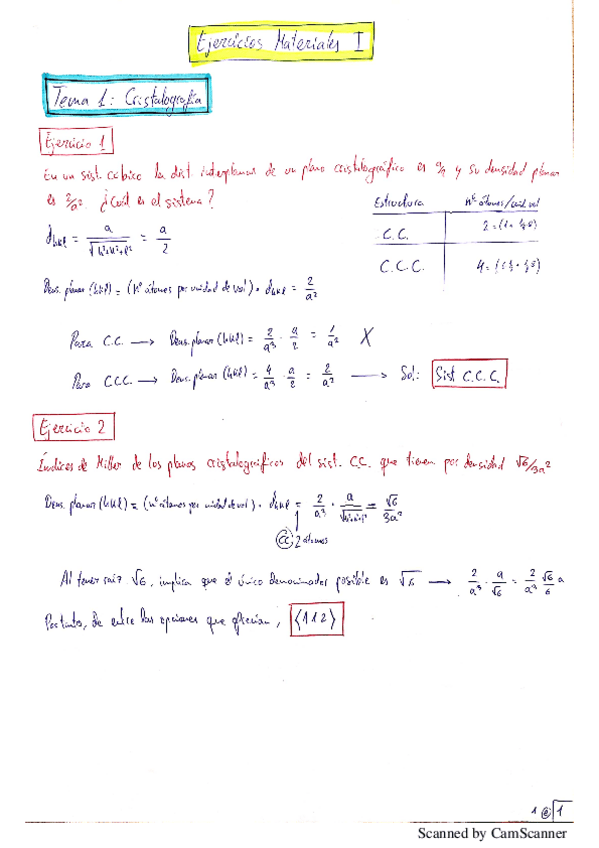 Ejercicios Materiales I
Tema 1: Cristalografía
Ejercicio 1
En un sist. cúbico la dist. interplanar de un plano cristalográfico es a/2 y su densidad planar
es 2/a². ¿Cuál es el sistema?
Estructura Nº átomos/unid. vol
C.C. 2 = (1 + 1/8·8)
C.C.C. 4 =
d_hkl = a/√(h²+k²+l²) = a/2
Dens. planar (hkl) = (Nº átomos por unidad de vol) · d_hkl = 2/a²
Para C.C. → Dens. planar (hkl) = 2/a³ · a/2 = 1/a² X
Para CCC. → Dens. planar (hkl) = 4/a³ · a/2 = 2/a² → Sol: Sist C.C.C.
Ejercicio 2
Índices de Miller de los planos cristalográficos del sist. CC. que tienen por densidad √6/3a²
Dens. planar (hkl) = (nº átomos por unidad de vol) · d_hkl = 2/a³ · a/√(h²+k²+l²) = √6/3a²
CC; 2 átomos
Al tener raiz √6, implica que el único denominador posible es √6 → 2/a³ · a/√6 = 2/a³ √6/6 a
Por tanto, de entre las opciones que ofrecían, ⟨112⟩
1 @ 1
Scanned by CamScanner